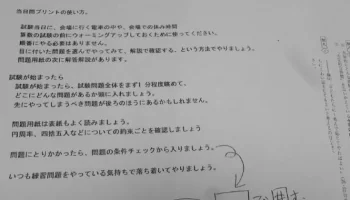 当日朝プリントの使い方。
試験当日に、会場に行く電車の中や、会場での休み時間
算数の試験の前にウォーミングアップしておくために使ってください。
順番にやる必要はありません。
目に付いた問題を選んでやってみて、解説で確認する、という方法でやりましょう。
問題用紙の次に解答解説があります。
試験が始まったら
試験が始まったら、試験問題全体をまず1分程度眺めて、
どこにどんな問題があるか頭に入れましょう。
先にやってしまうべき問題が後ろのほうにあるかもしれません。
問題用紙は表紙もよく読みましょう。
円周率、四捨五入などについての約束ごとを確認しましょう
問題にとりかかったら、問題の条件チェックから入りましょう。
いつも練習問題をやっている気持ちで落ち着いてやりましょう。
で囲む